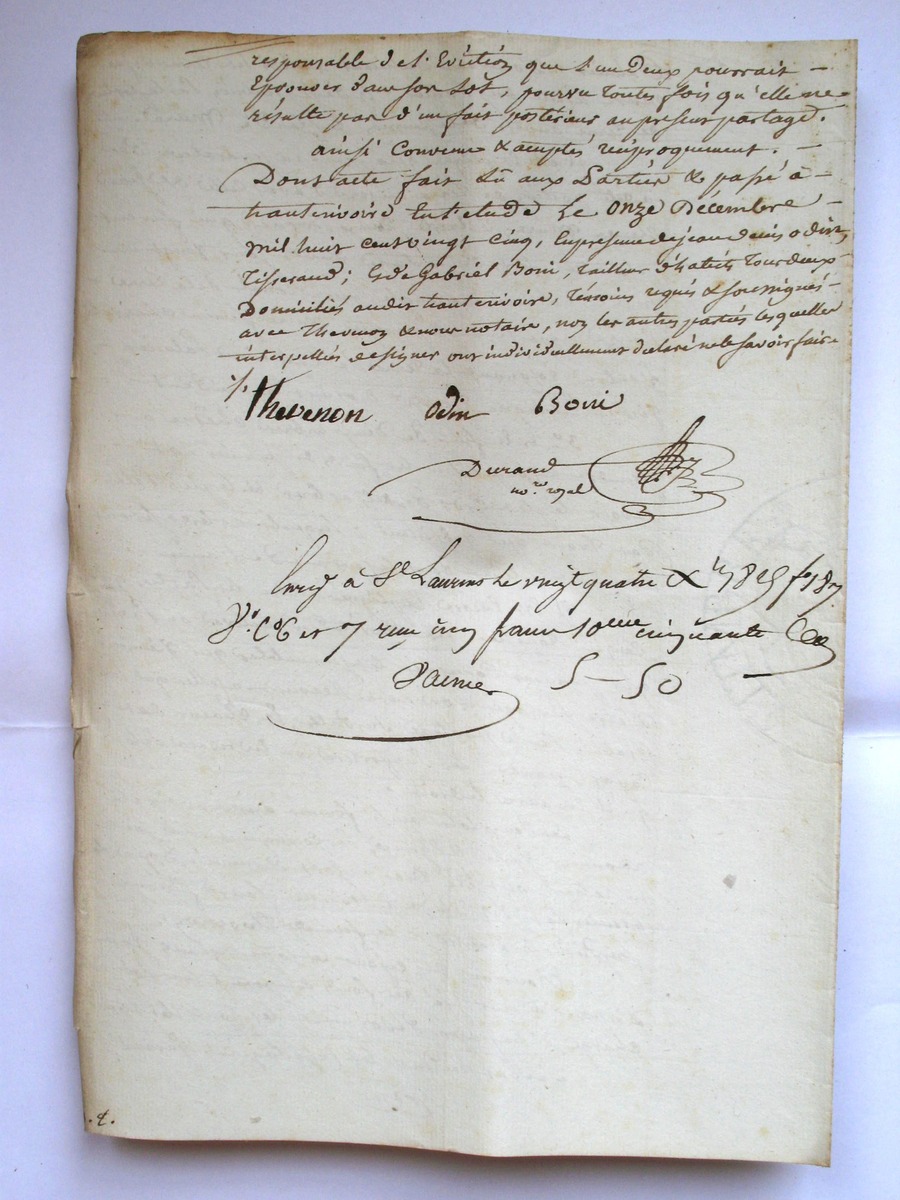 responsable de l'Eviction que l'un Deux pourrait —
Eprouver dans son Lot, pourvu toutes fois qu'elle ne
résulte pas d'un fait postérieur au présent partage.
ainsi Convenu & acceptés réciproquement. —
Dont acte fait Lû aux Parties & passé à —
hauterivoire En l'etude Le Onze Décembre —
Mil huit cent vingt Cinq, En presence de jean denis odin,
Tisserand; Et de Gabriel Boni, tailleur d'habits Tous deux
Domiciliés audit hauterivoire, Témoins requis & soussignés —
avec Thevenon & nous notaire, non les autres parties lesquelles
interpellés de signer ont individuellement déclaré ne le Savoir faire
Thevenon odin Boni
Durand
no.re royal
Enreg à St Laurent le vingt quatre Xbre 1825 fo 187
Vo C 6 et 7 reçu cinq francs 10eme cinquante
5 — 50